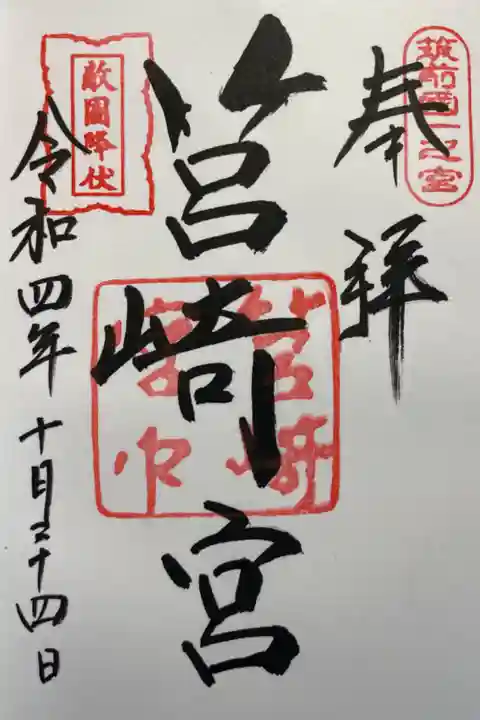 筑前國一之宮
奉拝
筥崎宮
筥崎
宮印
敵國降伏
令和四年十月二十四日